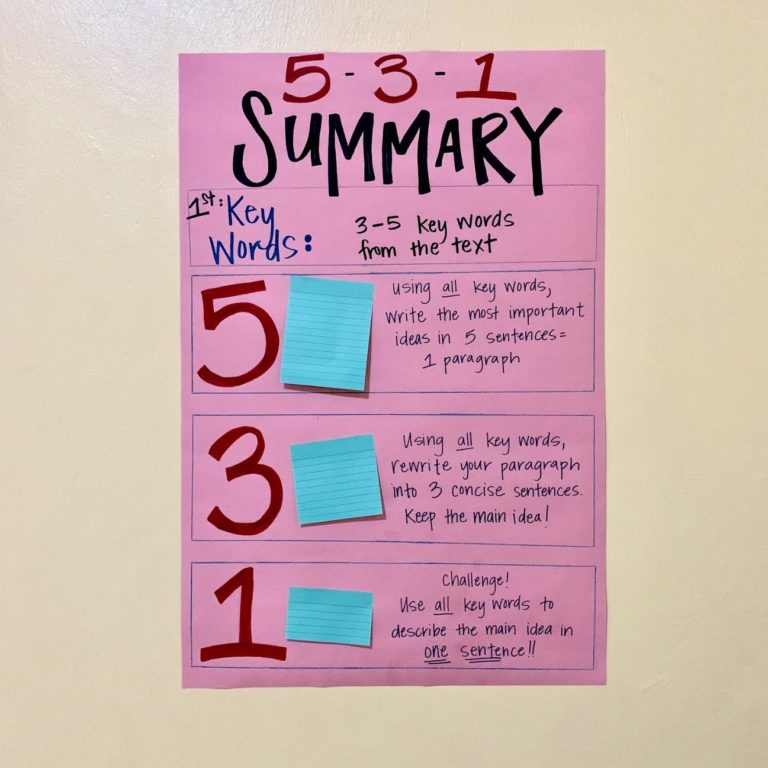 5-3-1
SUMMARY
1st: Key
Words:
3-5 key words
from the text
5
using all key words,
write the most important
ideas in 5 sentences=
1 paragraph
3
Using all key words,
rewrite your paragraph
into 3 concise sentences.
Keep the main idea!
1
Challenge!
Use all key words to
describe the main idea in
one sentence!!